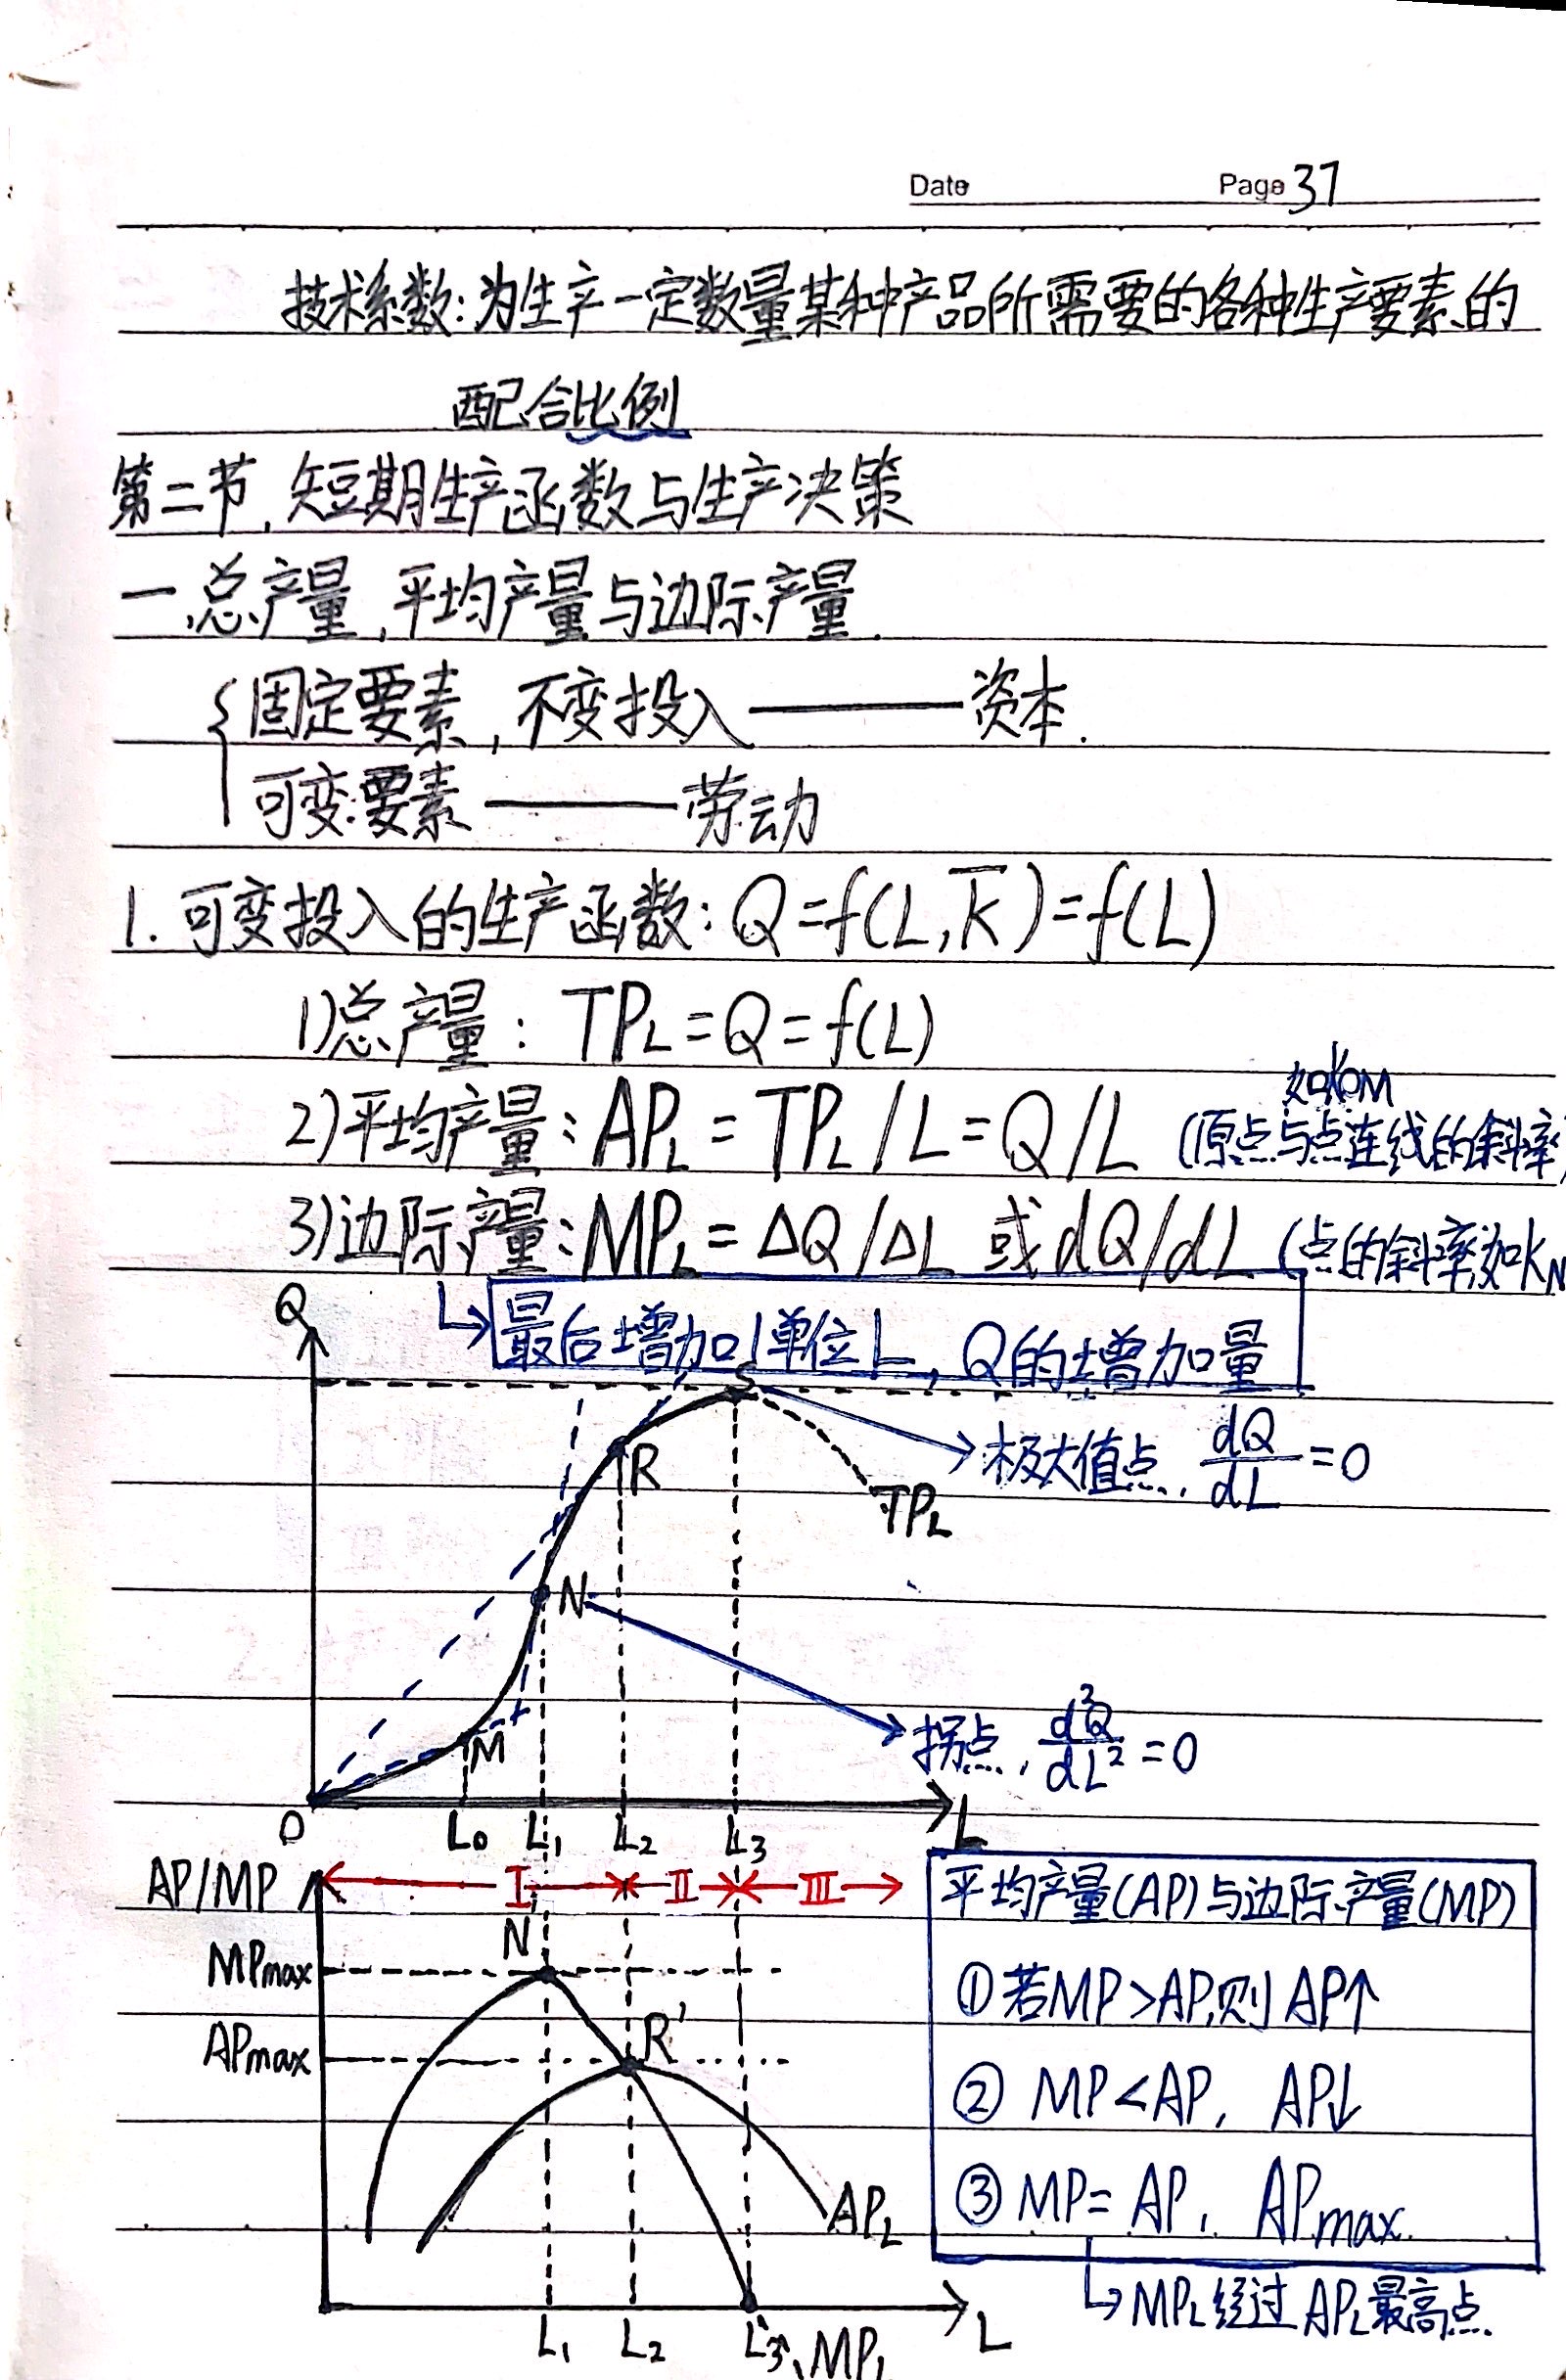 Date Page 37
技术系数:为生产一定数量某种产品所需要的各种生产要素的
配合比例
第二节,短期生产函数与生产决策
一.总产量,平均产量与边际产量.
{固定要素,不变投入——资本.
可变要素——劳动
1.可变投入的生产函数:Q=f(L,K̅)=f(L)
1)总产量:TP_L=Q=f(L)
如k_OM
2)平均产量:AP_L=TP_L/L=Q/L (原点与点连线的斜率)
3)边际产量:MP_L=ΔQ/ΔL 或dQ/dL (点的斜率如k_N
↳最后增加1单位L,Q的增加量
Q
S
极大值点,dQ/dL=0
R
TP_L
N
M
拐点,d²Q/dL²=0
O L₀ L₁ L₂ L₃ L
AP/MP Ⅰ Ⅱ Ⅲ
平均产量(AP)与边际产量(MP)
N'
MPmax
①若MP>AP,则AP↑
R'
APmax
②MP<AP, AP↓
③MP=AP, APmax.
AP_L
↳MP_L经过AP_L最高点.
L₁ L₂ L₃ MP_L L